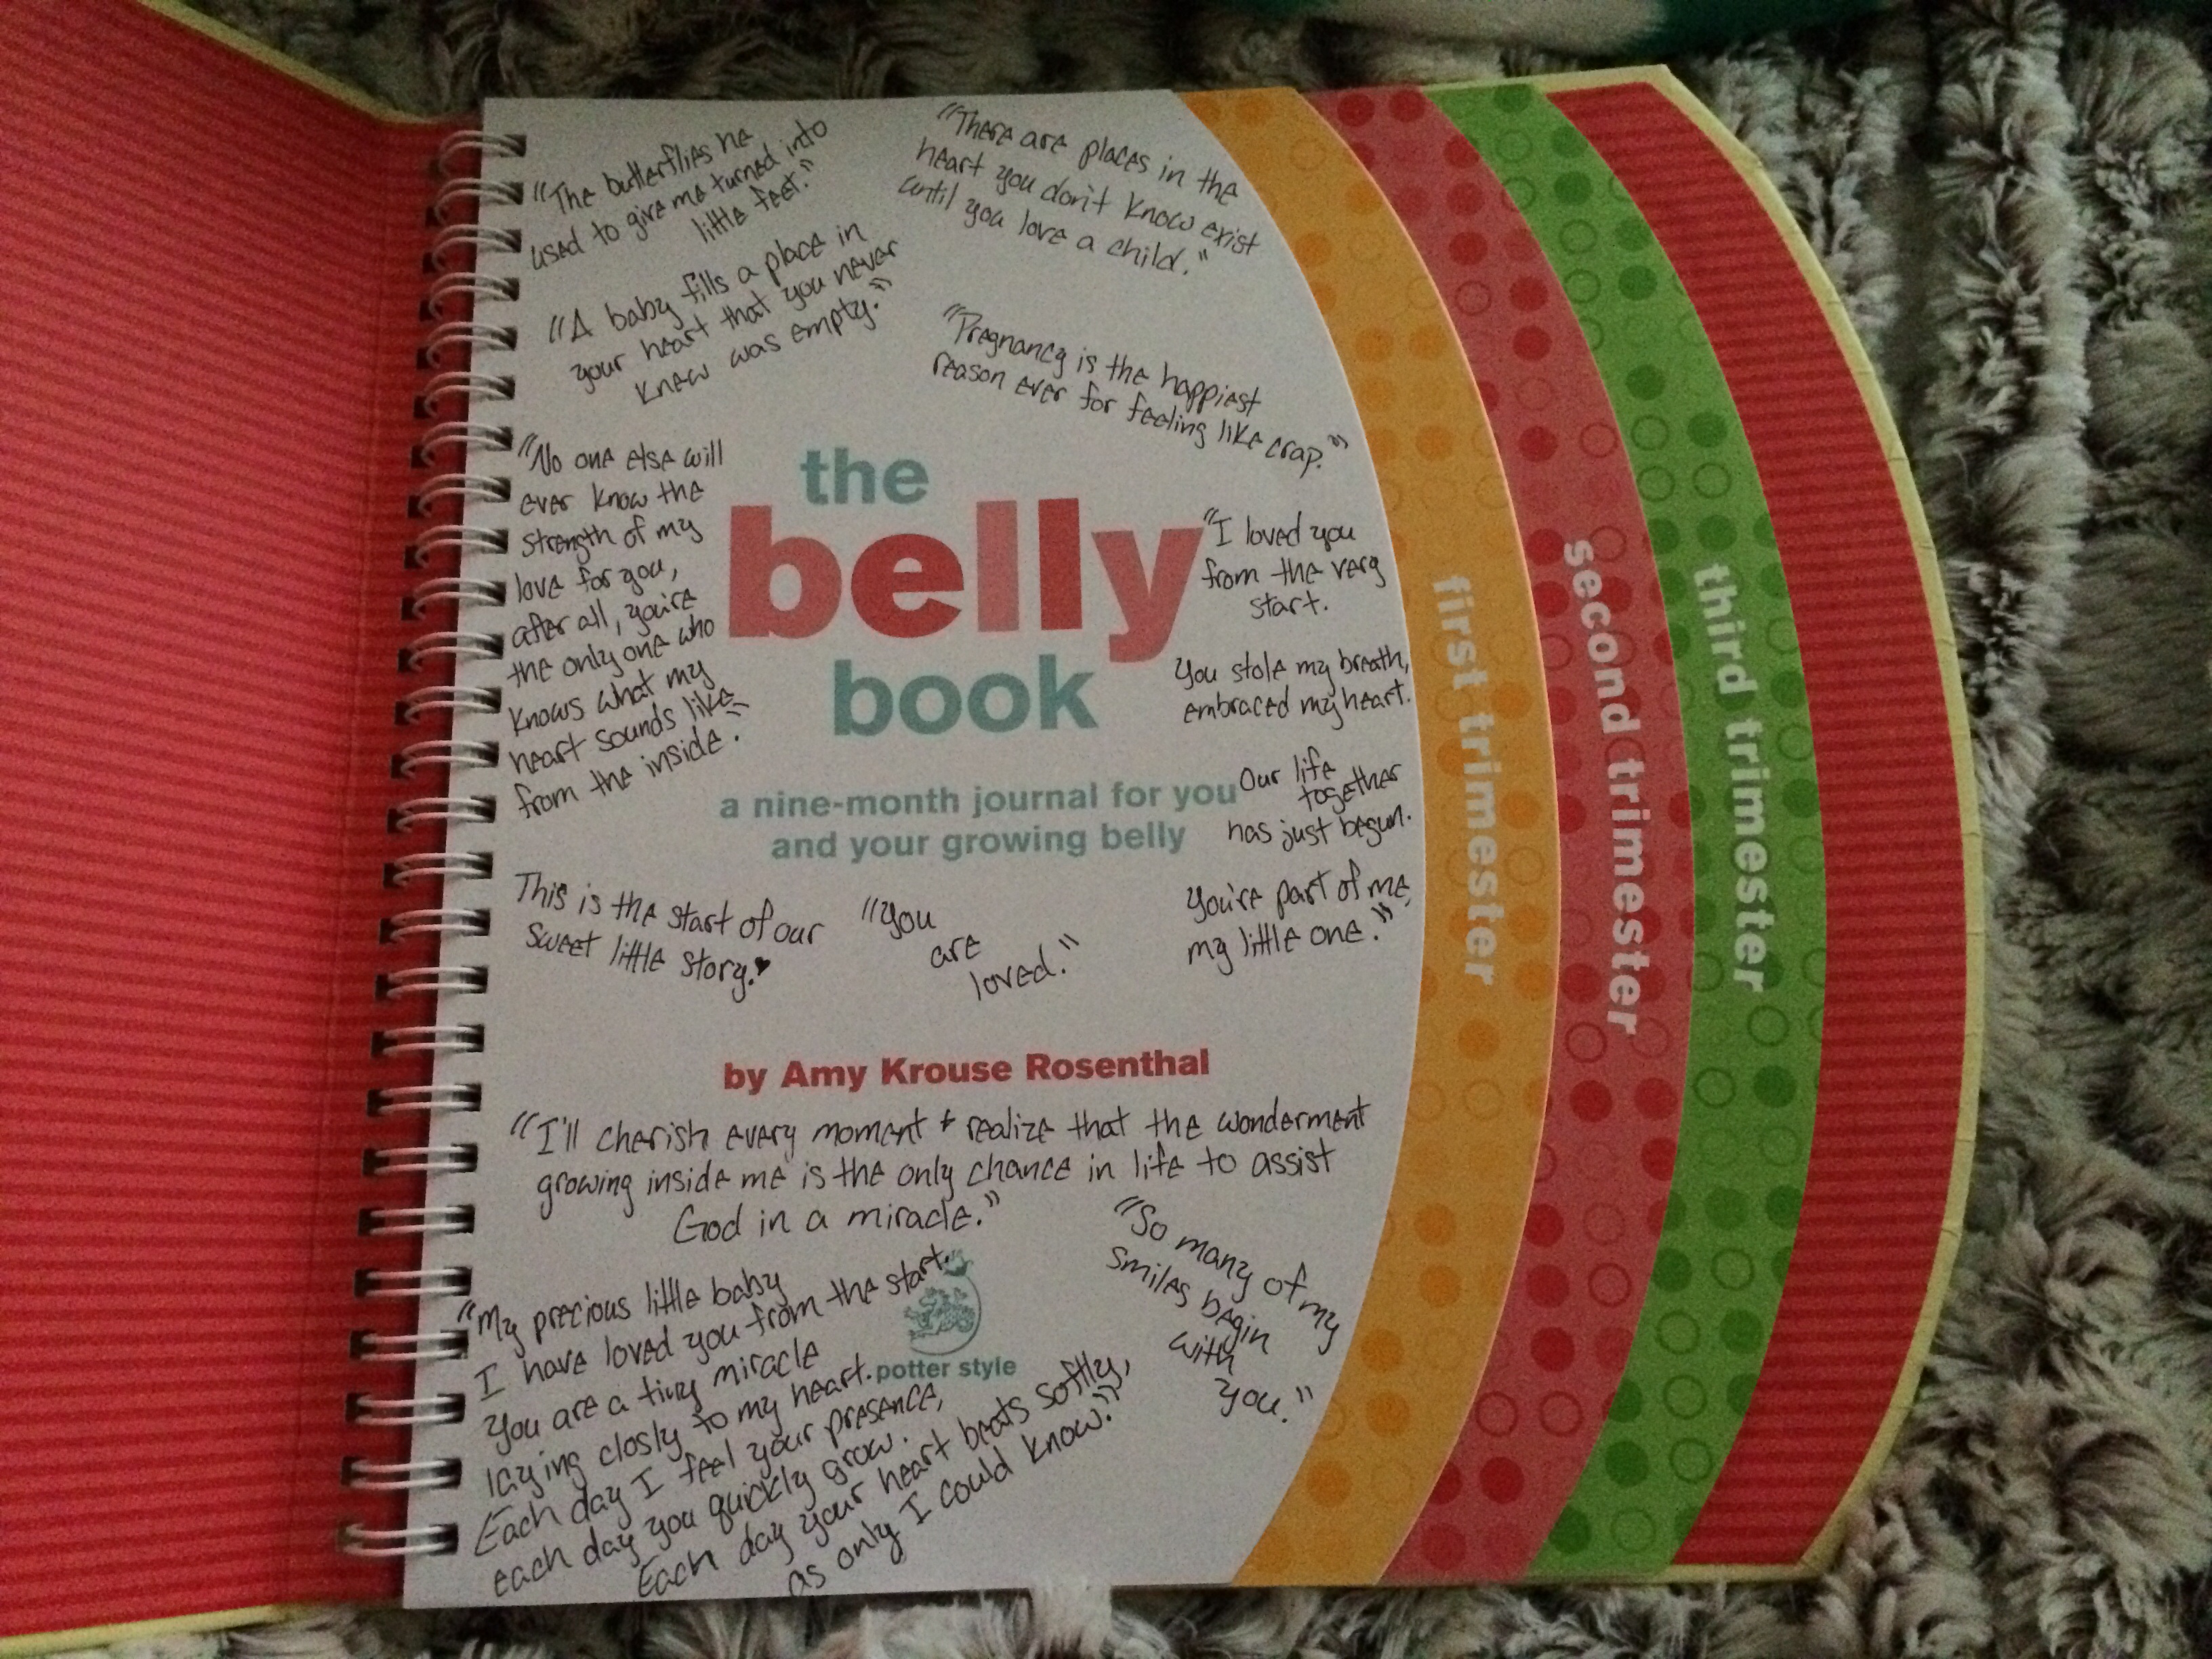 "The butterflies he
used to give me turned into
little feet."
"There are places in the
heart you don't know exist
until you love a child."
"A baby fills a place in
your heart that you never
knew was empty."
"Pregnancy is the happiest
reason ever for feeling like crap."
"No one else will
ever know the
strength of my
love for you,
after all, you're
the only one who
knows what my
heart sounds like
from the inside."
the
belly
book
a nine-month journal for you
and your growing belly
"I loved you
from the very
start.
You stole my breath,
embraced my heart.
Our life
together
has just begun.
You're part of me,
my little one."
This is the start of our
sweet little story.♥
"You
are
loved."
by Amy Krouse Rosenthal
"I'll cherish every moment + realize that the wonderment
growing inside me is the only chance in life to assist
God in a miracle."
"My precious little baby
I have loved you from the start.
You are a tiny miracle
laying closly to my heart.
Each day I feel your presence,
each day you quickly grow.
Each day your heart beats softly,
as only I could know."
potter style
"So many of my
smiles begin
with
you."
first trimester
second trimester
third trimester